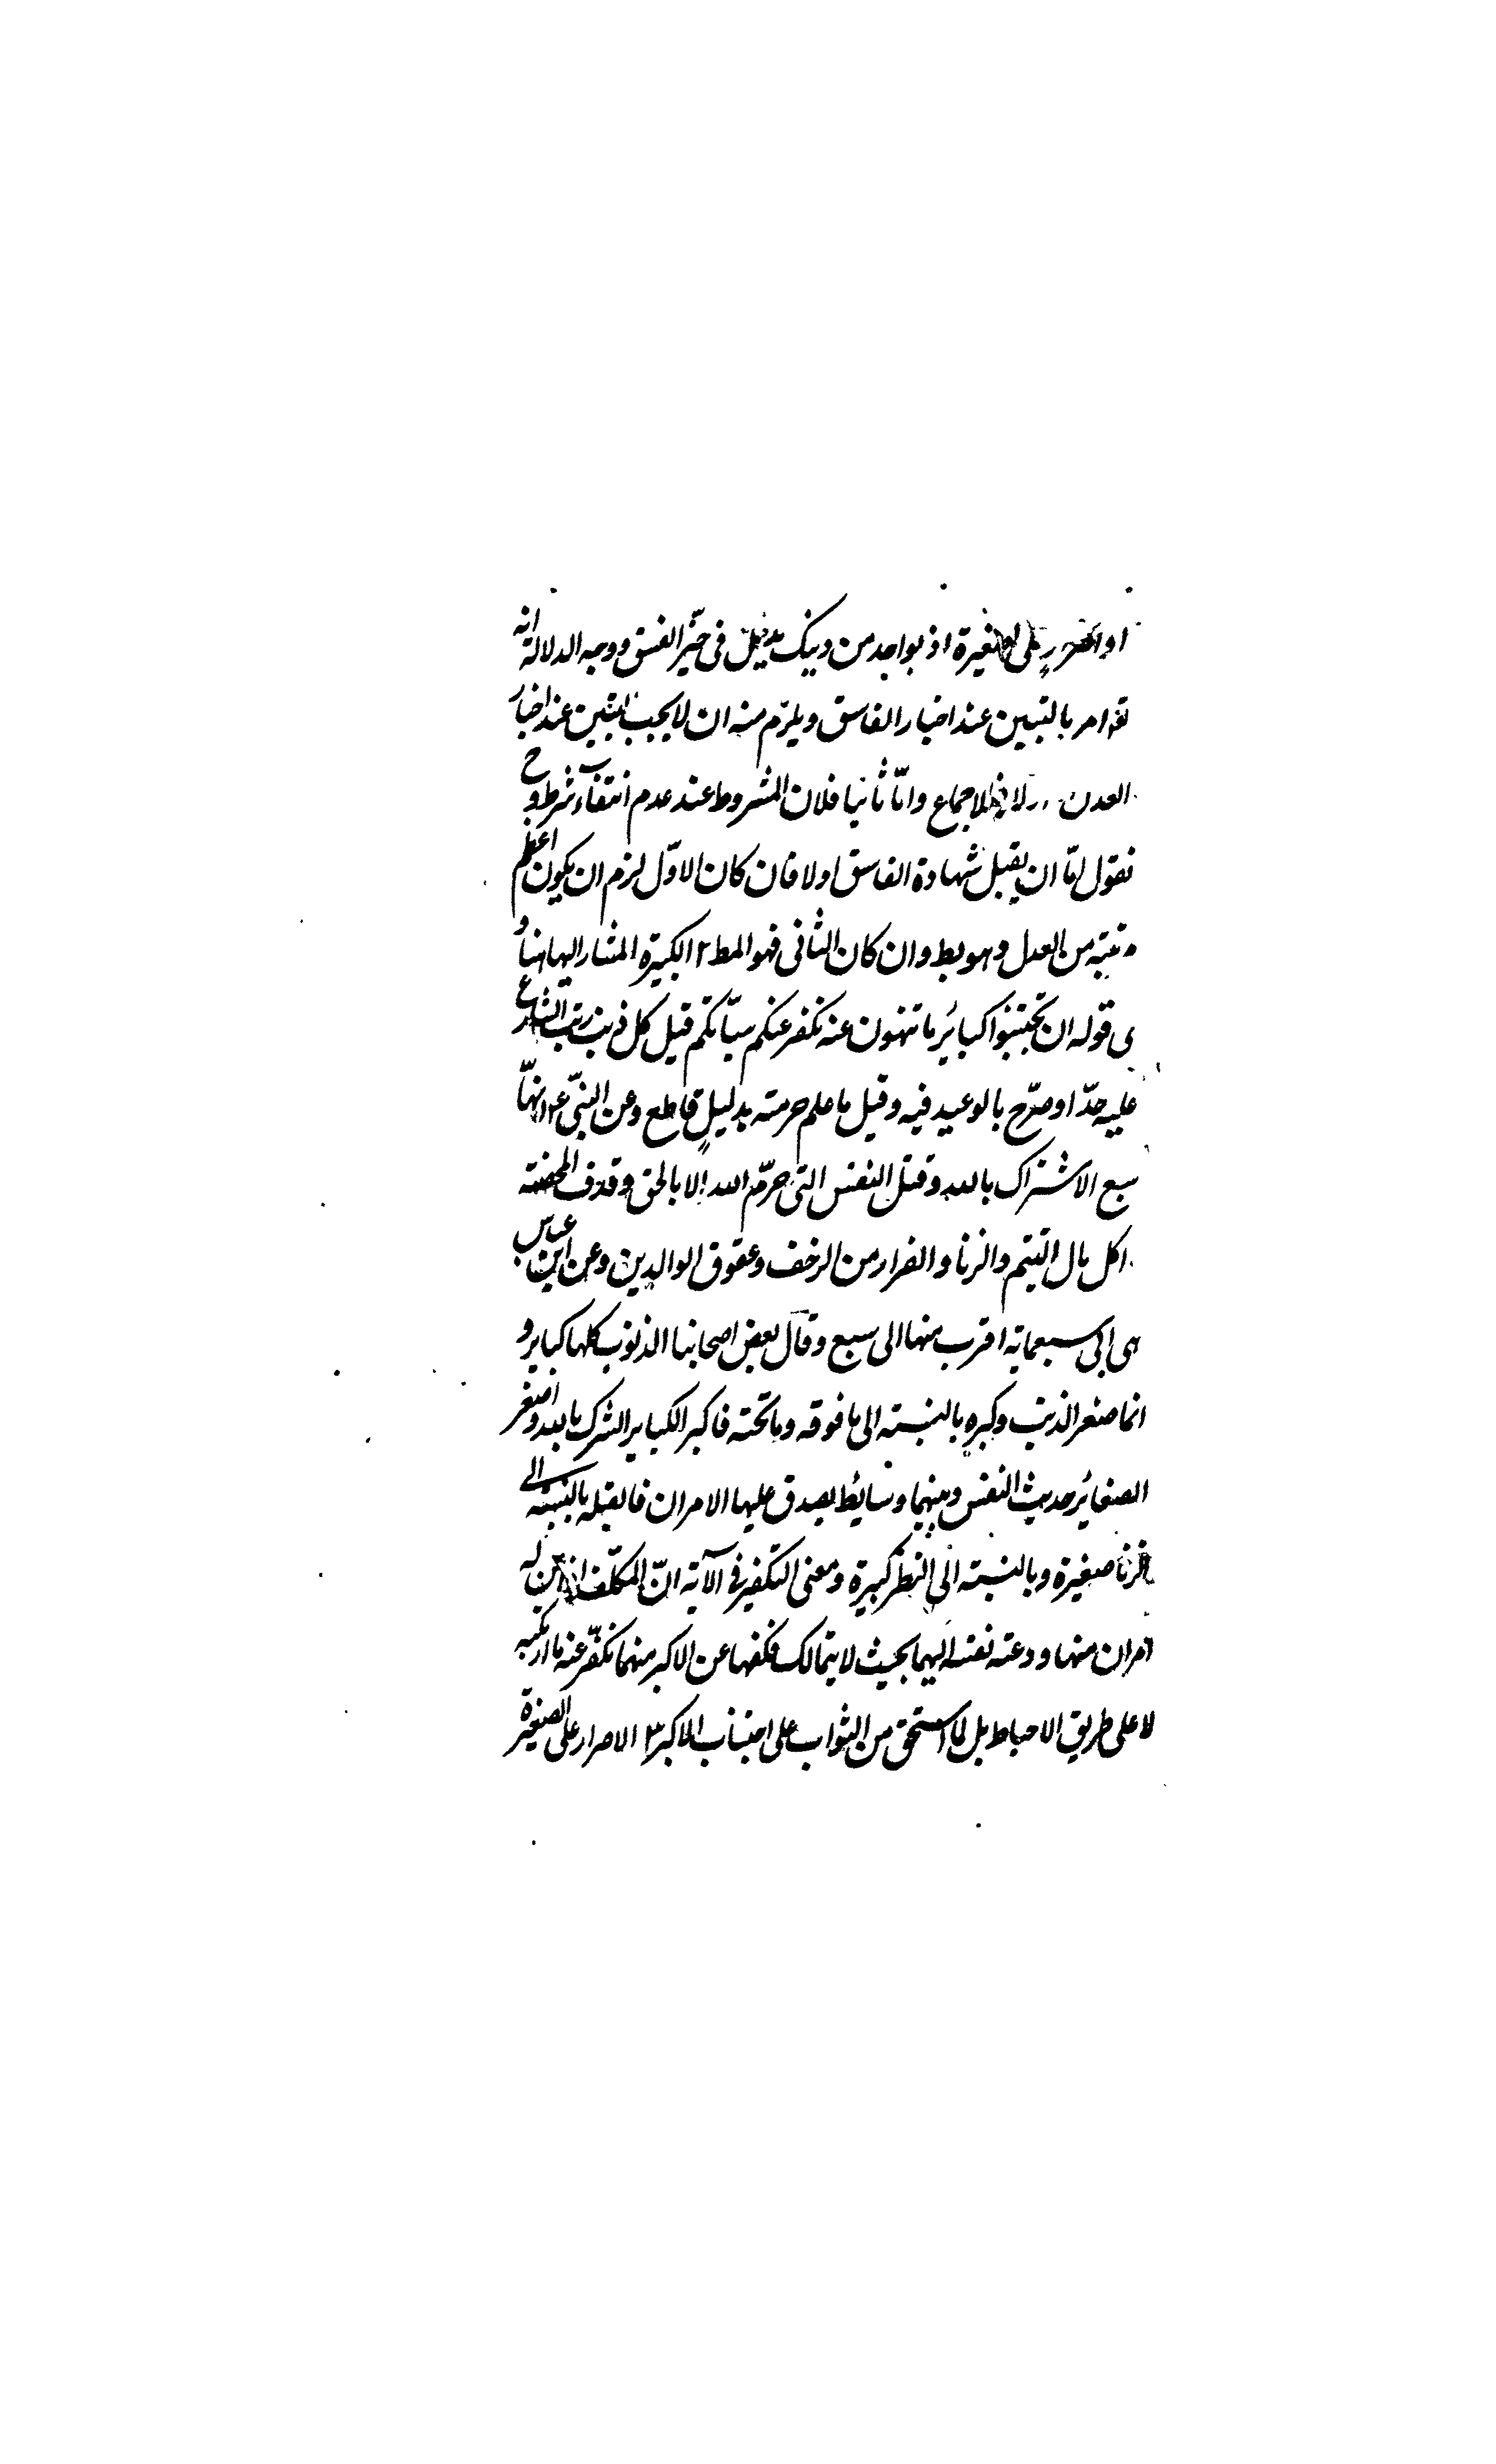 او اصر على الصغيرة اذ بواحد من ذينك يدخل في حيّز الفسق ووجه الدلالة انه
تع امر بالتبين عند اخبار الفاسق ويلزم منه ان لا يجب التبين عند اخبار
العدل للاجماع وامّا ثانيا فلان المشروط عند عدم انتفاء شرط وح
نقول امّا ان يقبل شهادة الفاسق اولا فان كان الاوّل لزم ان يكون اعظم
مرتبة من العدل وهو بط وان كان الثاني فهو المط ٢ الكبيرة المشار اليها هنا و
في قوله ان تجتنبوا كبائر ما تنهون عنه نكفر عنكم سيّآتكم قيل كل ذنب رتب الشارع
عليه حدّا او صرّح بالوعيد فيه وقيل ما علم حرمته بدليلٍ قاطع وعن النبيّ ع انهّا
سبع الاشراك بالله وقتل النفس التي حرمّ الله الا بالحق وقذف المحصنة
اكل مال اليتيم والزنا والفرار من الزحف وعقوق الوالدين وعن ابن عباس
هى الى سبعماية اقرب منها الى سبع وقال بعض اصحابنا الذنوب كلها كباير و
انما صغر الذنب وكبره بالنسبة الى ما فوقه وما تحته فاكبر الكباير الشرك بالله واصغر
الصغائر حديث النفس وبينهما وسايط يصدق عليها الامران فالقبلة بالنسبة الى
الزنا صغيرة وبالنسبة الى النظر كبيرة ومعنى التكفير في الآية انّ المكلّف اذا عنّ له
امران منها ودعته نفسه اليهما بحيث لا يتمالك فكفها عن الاكبر منهما نكفّر عنه ما ارتكبه
لا على طريق الاحباط بل لما استحق من الثواب على اجتناب الاكبر ٣ الاصرار على الصغيرة